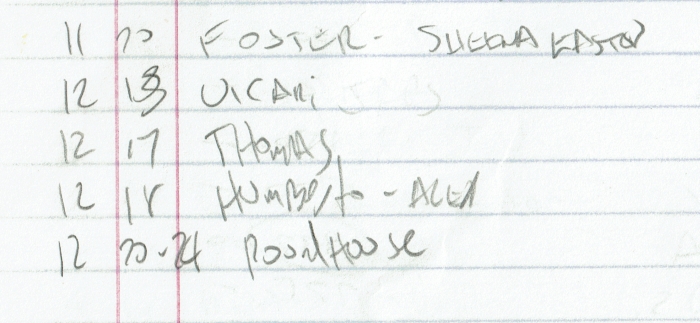 11 20 FOSTER - SHEENA EASTON
12 13 VICARI
12 17 THOMAS
12 18 HUMBERTO - ALEX
12 20-24 ROUNDHOUSE